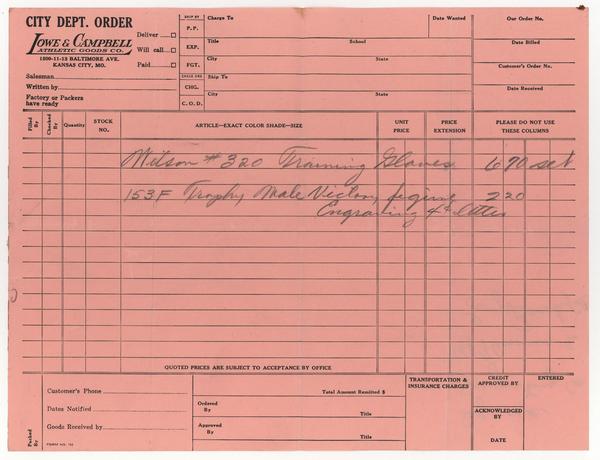 CITY DEPT. ORDER
LOWE & CAMPBELL
ATHLETIC GOODS CO.
1509-11-13 BALTIMORE AVE.
KANSAS CITY, MO.
Salesman
Written by
Factory or Packers
have ready
Deliver
Will call
Paid
SHIP BY
P.P.
EXP.
FGT.
CHECK ONE
CHG.
C.O.D.
Charge To
Date Wanted
Title School
City State
Ship To
City State
Our Order No.
Date Billed
Customer's Order No.
Date Received
Filled By
Checked By
Quantity
STOCK NO.
ARTICLE—EXACT COLOR SHADE—SIZE
UNIT PRICE
PRICE EXTENSION
PLEASE DO NOT USE THESE COLUMNS
Wilson #320 Training Gloves 6 70 set
153F Trophy Male Victory figure 2 20
Engraving 4¢ letter
QUOTED PRICES ARE SUBJECT TO ACCEPTANCE BY OFFICE
Packed By
Customer's Phone
Dates Notified
Goods Received by
Total Amount Remitted $
Ordered By Title
Approved By Title
TRANSPORTATION & INSURANCE CHARGES
CREDIT APPROVED BY
ACKNOWLEDGED BY
DATE
ENTERED